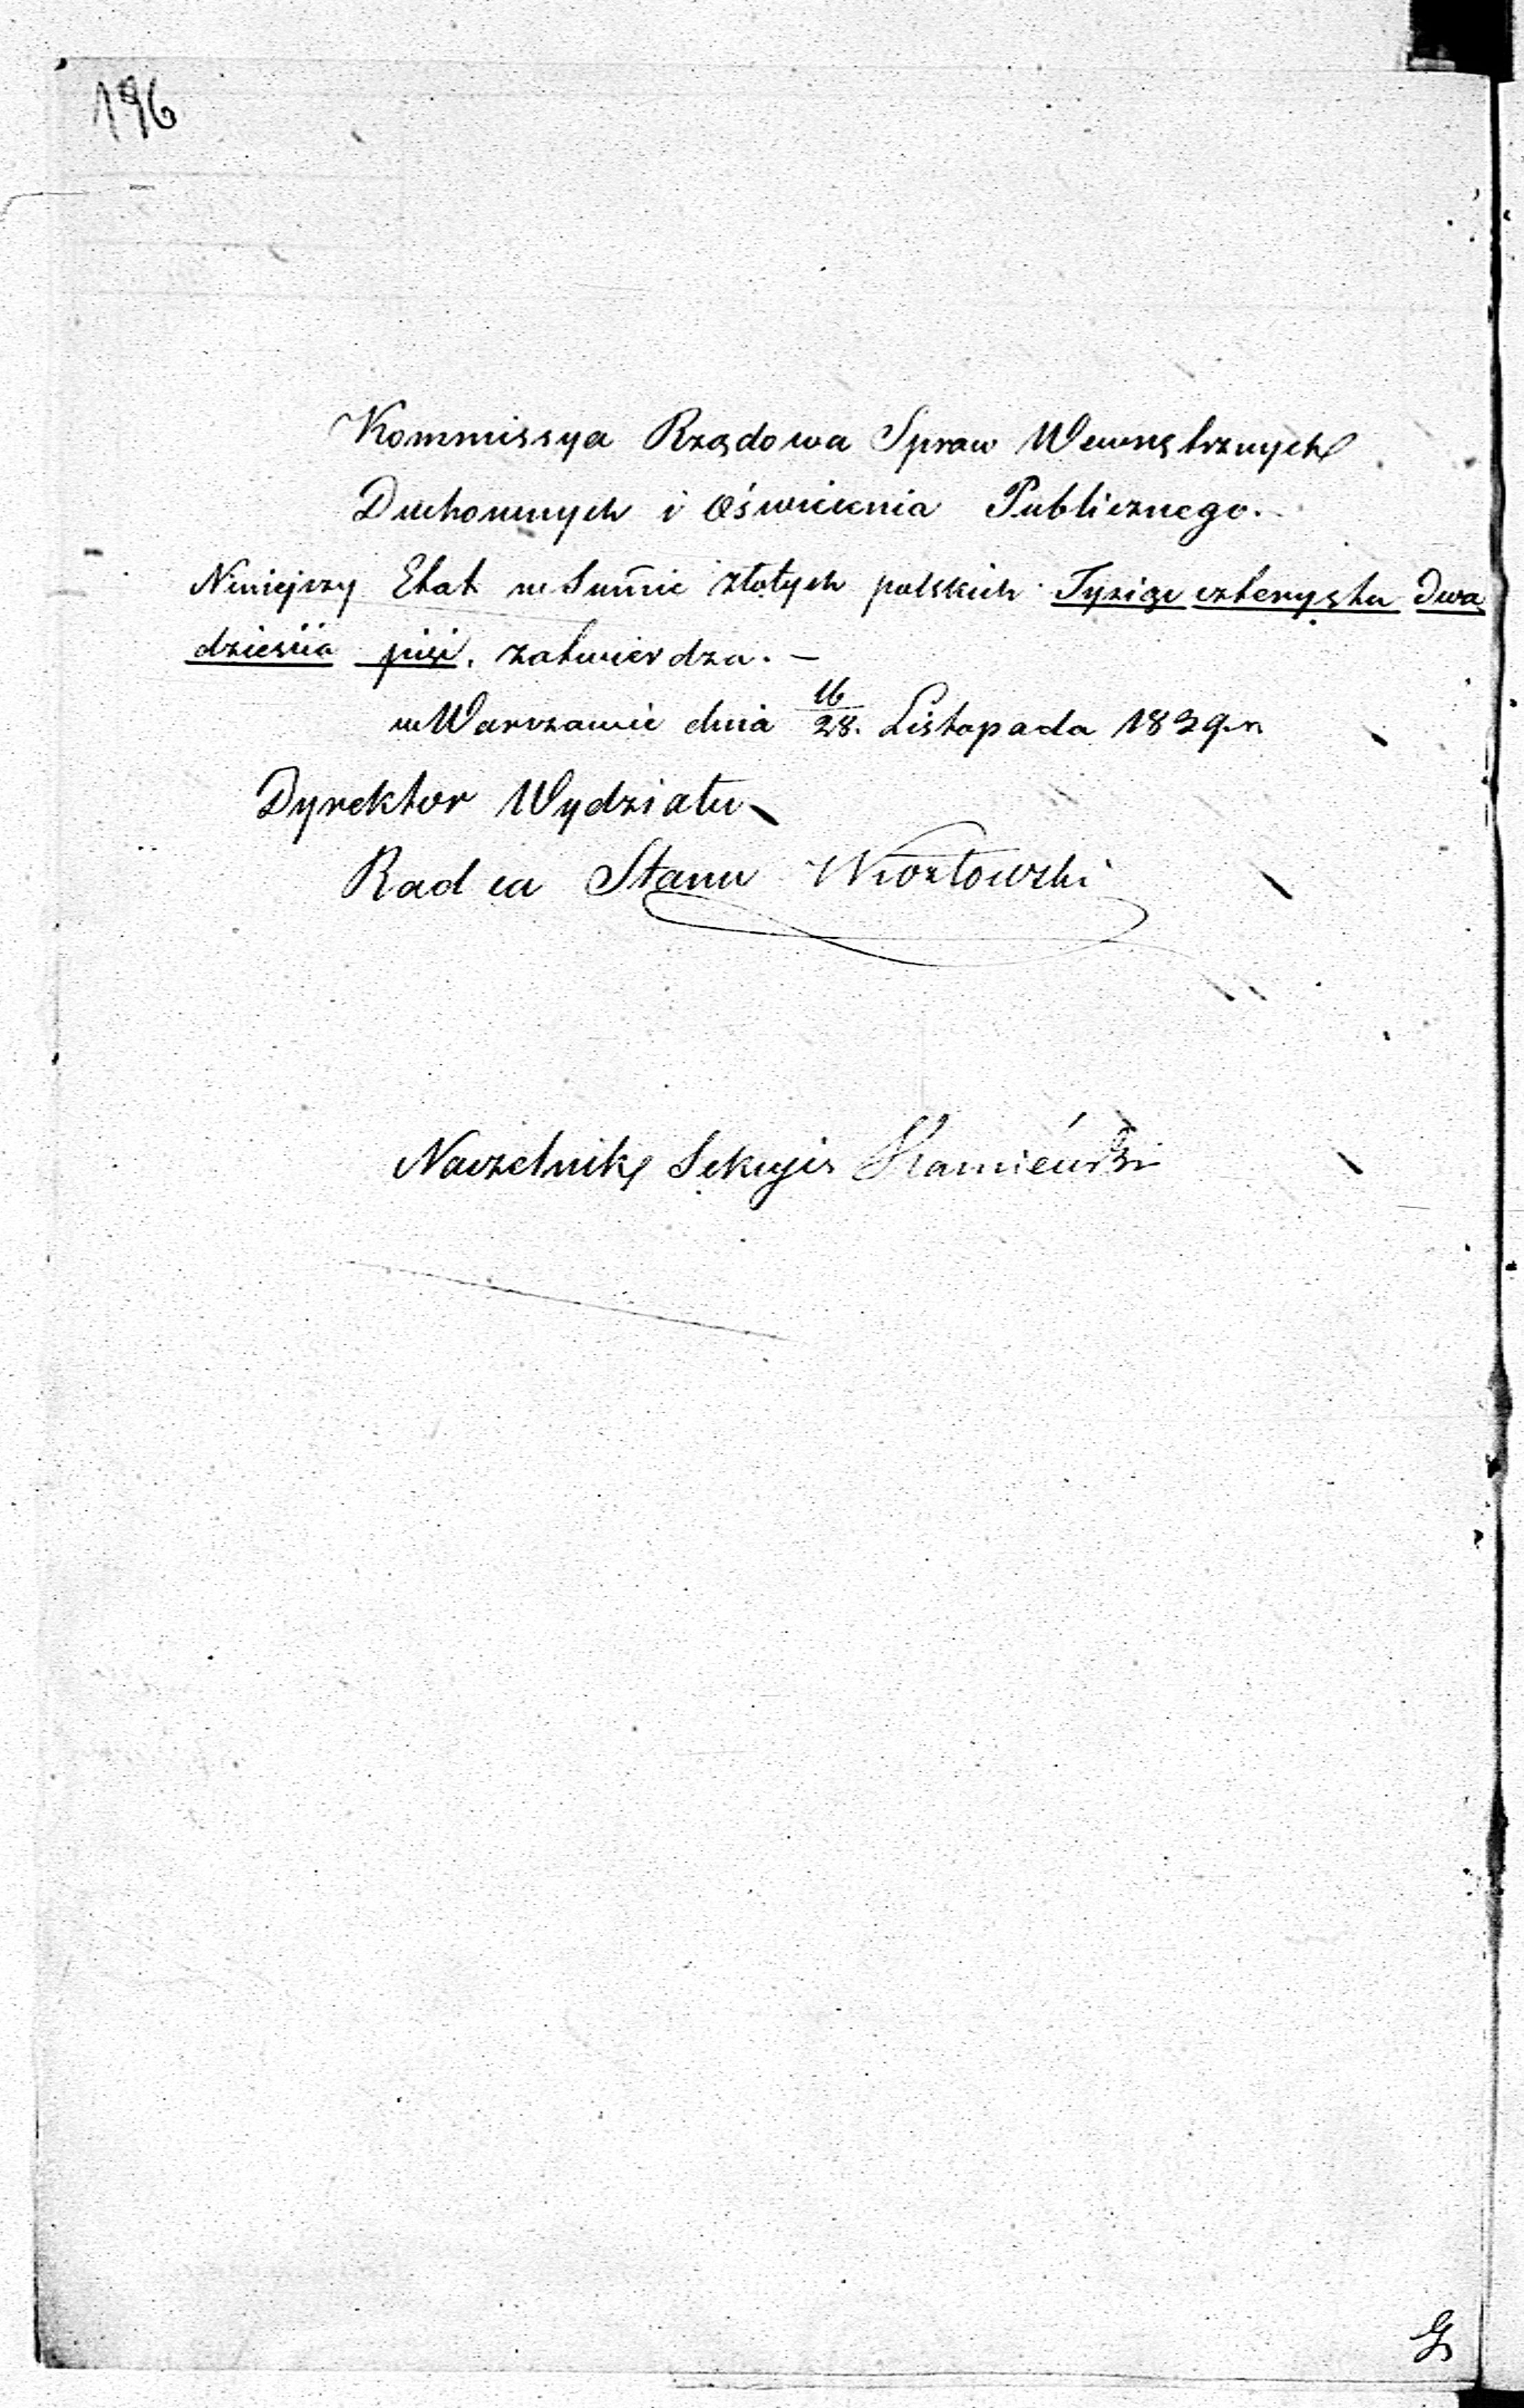 196
Kommissya Rządowa Spraw Wewnętrznych
Duchownych i Oświecenia Publicznego.
Niniejszy Etat w Summie złotych polskich Tysiąc czterysta dwa
dzieścia pięć. zatwierdza. —
w Warszawie dnia 16/28. Listopada 1839. r.
Dyrektor Wydziału
Radca Stanu Kozłowski
Naczelnik Sekcyi